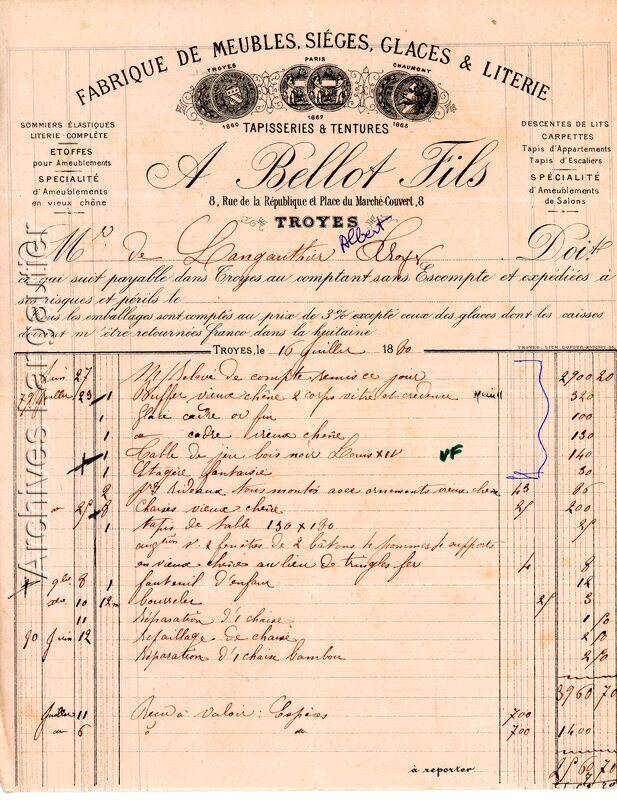 FABRIQUE DE MEUBLES, SIÉGES, GLACES & LITERIE
TROYES
PARIS
CHAUMONT
1860
1867
1865
TAPISSERIES & TENTURES
SOMMIERS ÉLASTIQUES
LITERIE COMPLÈTE
ETOFFES
pour Ameublements
SPÉCIALITÉ
d'Ameublements
en vieux chêne
DESCENTES DE LITS
CARPETTES
Tapis d'Appartements
Tapis d'Escaliers
SPÉCIALITÉ
d'Ameublements
de Salons
A Bellot Fils
8, Rue de la République et Place du Marché-Couvert, 8
TROYES
Albert
Mr de Langauthier Troyes Doit
ce qui suit payable dans Troyes au comptant sans Escompte et expédiées à
ses risques et périls le
Tous les emballages sont comptés au prix de 3% excepté ceux des glaces dont les caisses
devront m'être retournées franco dans la huitaine
TROYES, LITH. DUFOUR-BOUQUOT
TROYES, le 16 Juillet 1880
Juin 27 M/ Relevé de compte remis ce jour 2900 20
79 Juillet 23 1 Buffet vieux chêne 2 corps vitré et crédence 320
1 Glace cadre or fin 100
1 do cadre vieux chêne 130
1 Table de jeu bois noir Louis XIV VF 140
1 Etagère fantaisie 30
2 Rideaux tous montés avec ornements vieux chêne 43 86
do 25 8 Chaises vieux chêne 25 200
1 tapis de table 130 x 180 25
2 fenêtes de 2 bâtons supports
en vieux chêne au lieu de tringles fer 4 8
9bre 8 1 fauteuil d'enfant 12
10 12m bourrelet 25 3
11 Réparation d'1 chaise 1 50
90 Juin 12 Repaillage de chaise 2 50
Réparation d'1 chaise bambou 2 50
3960 70
Juillet 11 Reçu à valoir : Espèces 700
6 do 700 1400
à reporter 2560 70
Archives Langanier